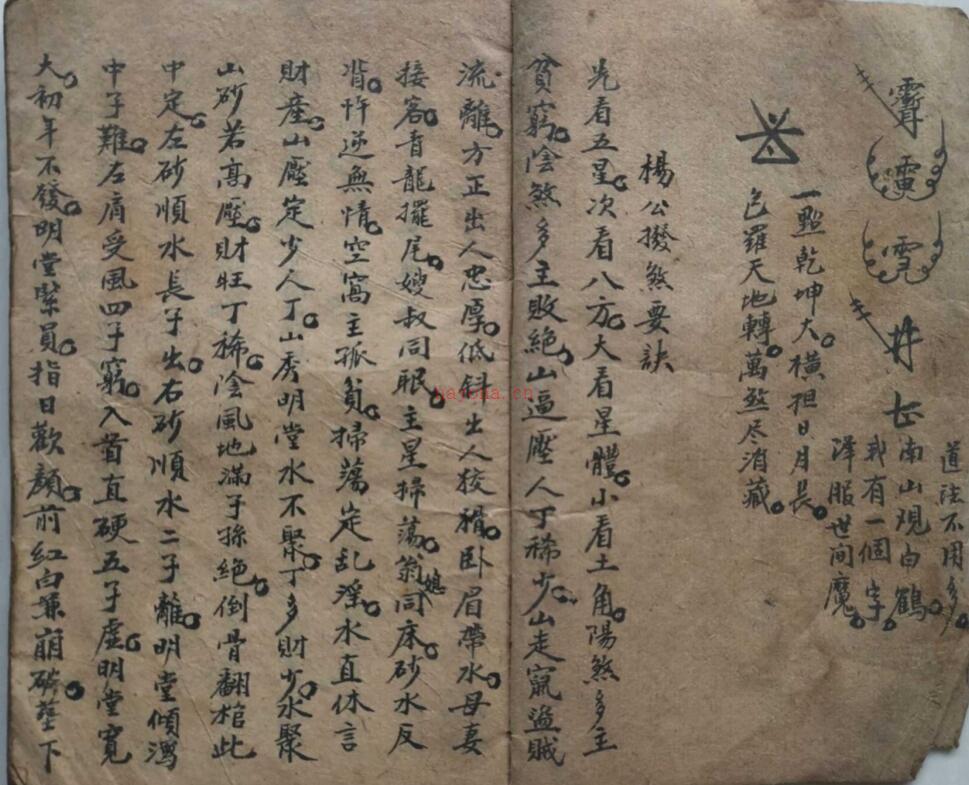 道法不用多
南山观白鶴
我有一個字
降服世间魔
一點乾坤大横担日月長
包羅天地轉萬煞尽消藏
楊公撥煞要訣
先看五星次看八方大看星體小看土角陽煞多主
貧窮陰煞多主敗絶山逼壓人丁稀少山走竄盗賊
流離方正出人忠厚低斜出人狡猾卧眉帶水母妻
接客青龍擺尾嫂叔同眠主星掃蕩翁媳同床砂水反
背忤逆無情空窩主孤貧掃蕩定乱淫水直休言
財産山壓定少人丁山秀明堂水不聚丁多財少水聚
山砂若高壓財旺丁稀陰風地滿子孫絶倒骨翻棺此
中定左砂順水長子出右砂順水二子離明堂傾瀉
中子難左肩受風四子窮入首直硬五子虚明堂寬
大初年不發明堂緊員指日歡顔前紅白兼崩破塋下
hayona.cn